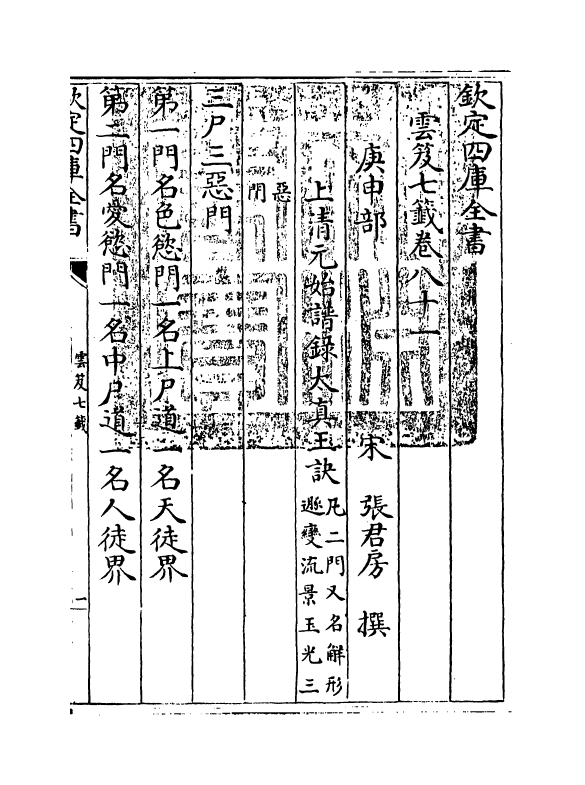 欽定四庫全書
雲笈七籤卷八十一
宋 張君房 撰
庚申部
上清元始譜錄太真玉訣凡二門又名解形
遯變流景玉光三
惡
門
三尸三惡門
第一門名色慾門一名上尸道一名天徒界
第二門名愛慾門一名中尸道一名人徒界
欽定四庫全書
雲笈七籤
一